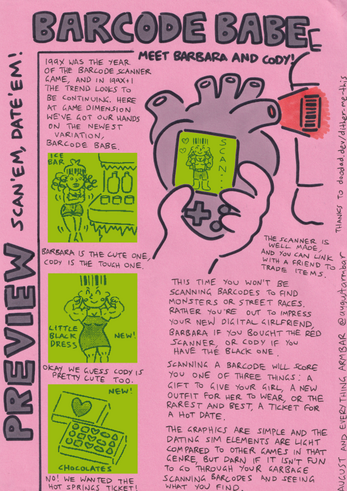 BARCODE BABE
MEET BARBARA AND CODY!
PREVIEW SCAN'EM, DATE'EM!
199X WAS THE YEAR
OF THE BARCODE SCANNER
GAME, AND IN 199X+1
THE TREND LOOKS TO
BE CONTINUING. HERE
AT GAME DIMENSION
WE'VE GOT OUR HANDS
ON THE NEWEST
VARIATION,
BARCODE BABE.
ICE
BAR
BARBARA IS THE CUTE ONE,
CODY IS THE TOUGH ONE.
LITTLE
BLACK
DRESS
NEW!
OKAY WE GUESS CODY IS
PRETTY CUTE TOO.
NEW!
CHOCOLATES
NO! WE WANTED THE
HOT SPRINGS TICKET!
SCAN...
THE SCANNER IS
WELL MADE,
AND YOU CAN LINK
WITH A FRIEND TO
TRADE ITEMS.
THIS TIME YOU WON'T BE
SCANNING BARCODES TO FIND
MONSTERS OR STREET RACES.
RATHER YOU'RE OUT TO IMPRESS
YOUR NEW DIGITAL GIRLFRIEND,
BARBARA IF YOU BOUGHT THE RED
SCANNER, OR CODY IF YOU
HAVE THE BLACK ONE.
SCANNING A BARCODE WILL SCORE
YOU ONE OF THREE THINGS: A
GIFT TO GIVE YOUR GIRL, A NEW
OUTFIT FOR HER TO WEAR, OR THE
RAREST AND BEST, A TICKET FOR
A HOT DATE.
THE GRAPHICS ARE SIMPLE AND THE
DATING SIM ELEMENTS ARE LIGHT
COMPARED TO OTHER GAMES IN THAT
GENRE BUT DARN IF IT ISN'T FUN
TO GO THROUGH YOUR GARBAGE
SCANNING BARCODES AND SEEING
WHAT YOU FIND.
AUGUST AND EVERYTHING ARMBAR @augustarmbar
THANKS TO doodad.dev/dither-me-this